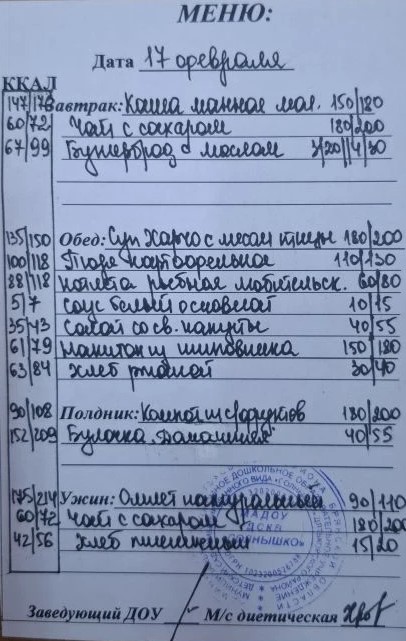 МЕНЮ:
Дата 17 февраля
ККАЛ
147/176 Завтрак: Каша манная мол. 150/180
60/72 Чай с сахаром 180/200
67/99 Бутерброд с маслом 30
135/150 Обед: Суп Харчо с мясом птицы 180/200
100/118 Пюре картофельное 110/130
88/118 Котлета рыбная любительск. 60/80
5/7 Соус белый основной 10/15
35/43 Салат со св. капусты 40/55
61/79 Напиток из шиповника 150/180
63/84 Хлеб ржаной 30/40
90/108 Полдник: Компот из с/фруктов 180/200
152/209 Булочка "Домашняя" 40/55
175/214 Ужин: Омлет натуральный 90/110
60/72 Чай с сахаром 180/200
42/56 Хлеб пшеничный 15/20
Заведующий ДОУ М/с диетическая